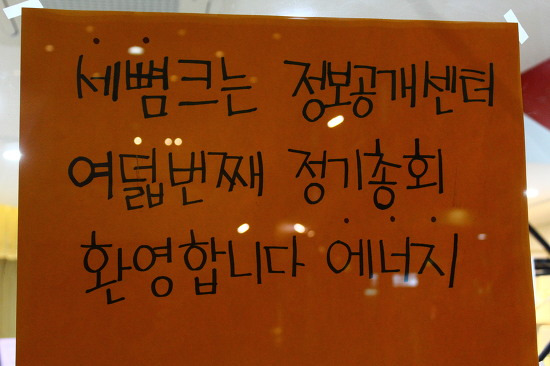 세뼘크는 정보공개센터
여덟번째 정기총회
환영합니다 에너지